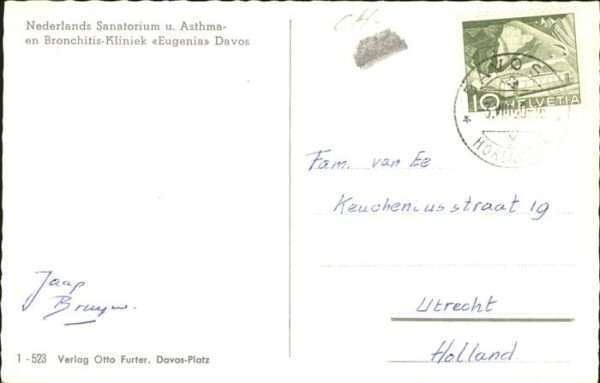 Nederlands Sanatorium u. Asthma-
en Bronchitis-Kliniek «Eugenia» Davos
CH.
10 HELVETIA
Fam. van Ee
Keucheniusstraat 19
Utrecht
Holland
Jaap
1 - 523 Verlag Otto Furter, Davos-Platz